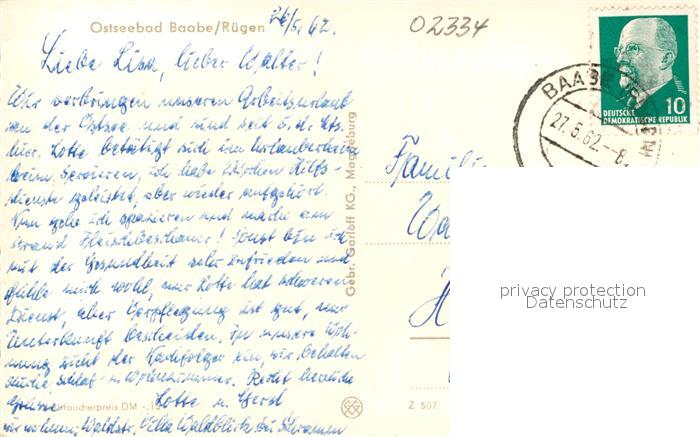 26/5. 62.
02334
Ostseebad Baabe/Rügen
Liebe Lisa, lieber Walter!
Wir verbringen unseren Arbeitsurlaub
an der Ostsee und sind seit 5. d. Mts.
hier. Lotte betätigt sich im Urlauberheim
beim Servieren, ich habe bißchen Hilfs-
dienste geleistet, aber wieder aufgehört.
Nun gehe ich spazieren und mache am
Strand Fleischbeschauer! Sonst bin ich
mit der Gesundheit sehr zufrieden und
fühle mich wohl, nur Lotte hat schweren
Dienst, aber Verpflegung ist gut, nur
Unterkunft bescheiden. In unsere Woh-
nung zieht der Nachfolger ein, wir behalten
Küche, Schlaf- u. Wohnzimmer. Recht herzliche
Grüsse Lotte u. Gerd
Wir wohnen, Waldstr. Villa Waldblick bei Schramm
Verbraucherpreis DM -,15
Gebr. Garloff KG., Magdeburg
Z 507
Familie
Wa
H
BAABE (RÜGEN)
27.5.62.-8.
10
DEUTSCHE
DEMOKRATISCHE REPUBLIK
privacy protection
Datenschutz